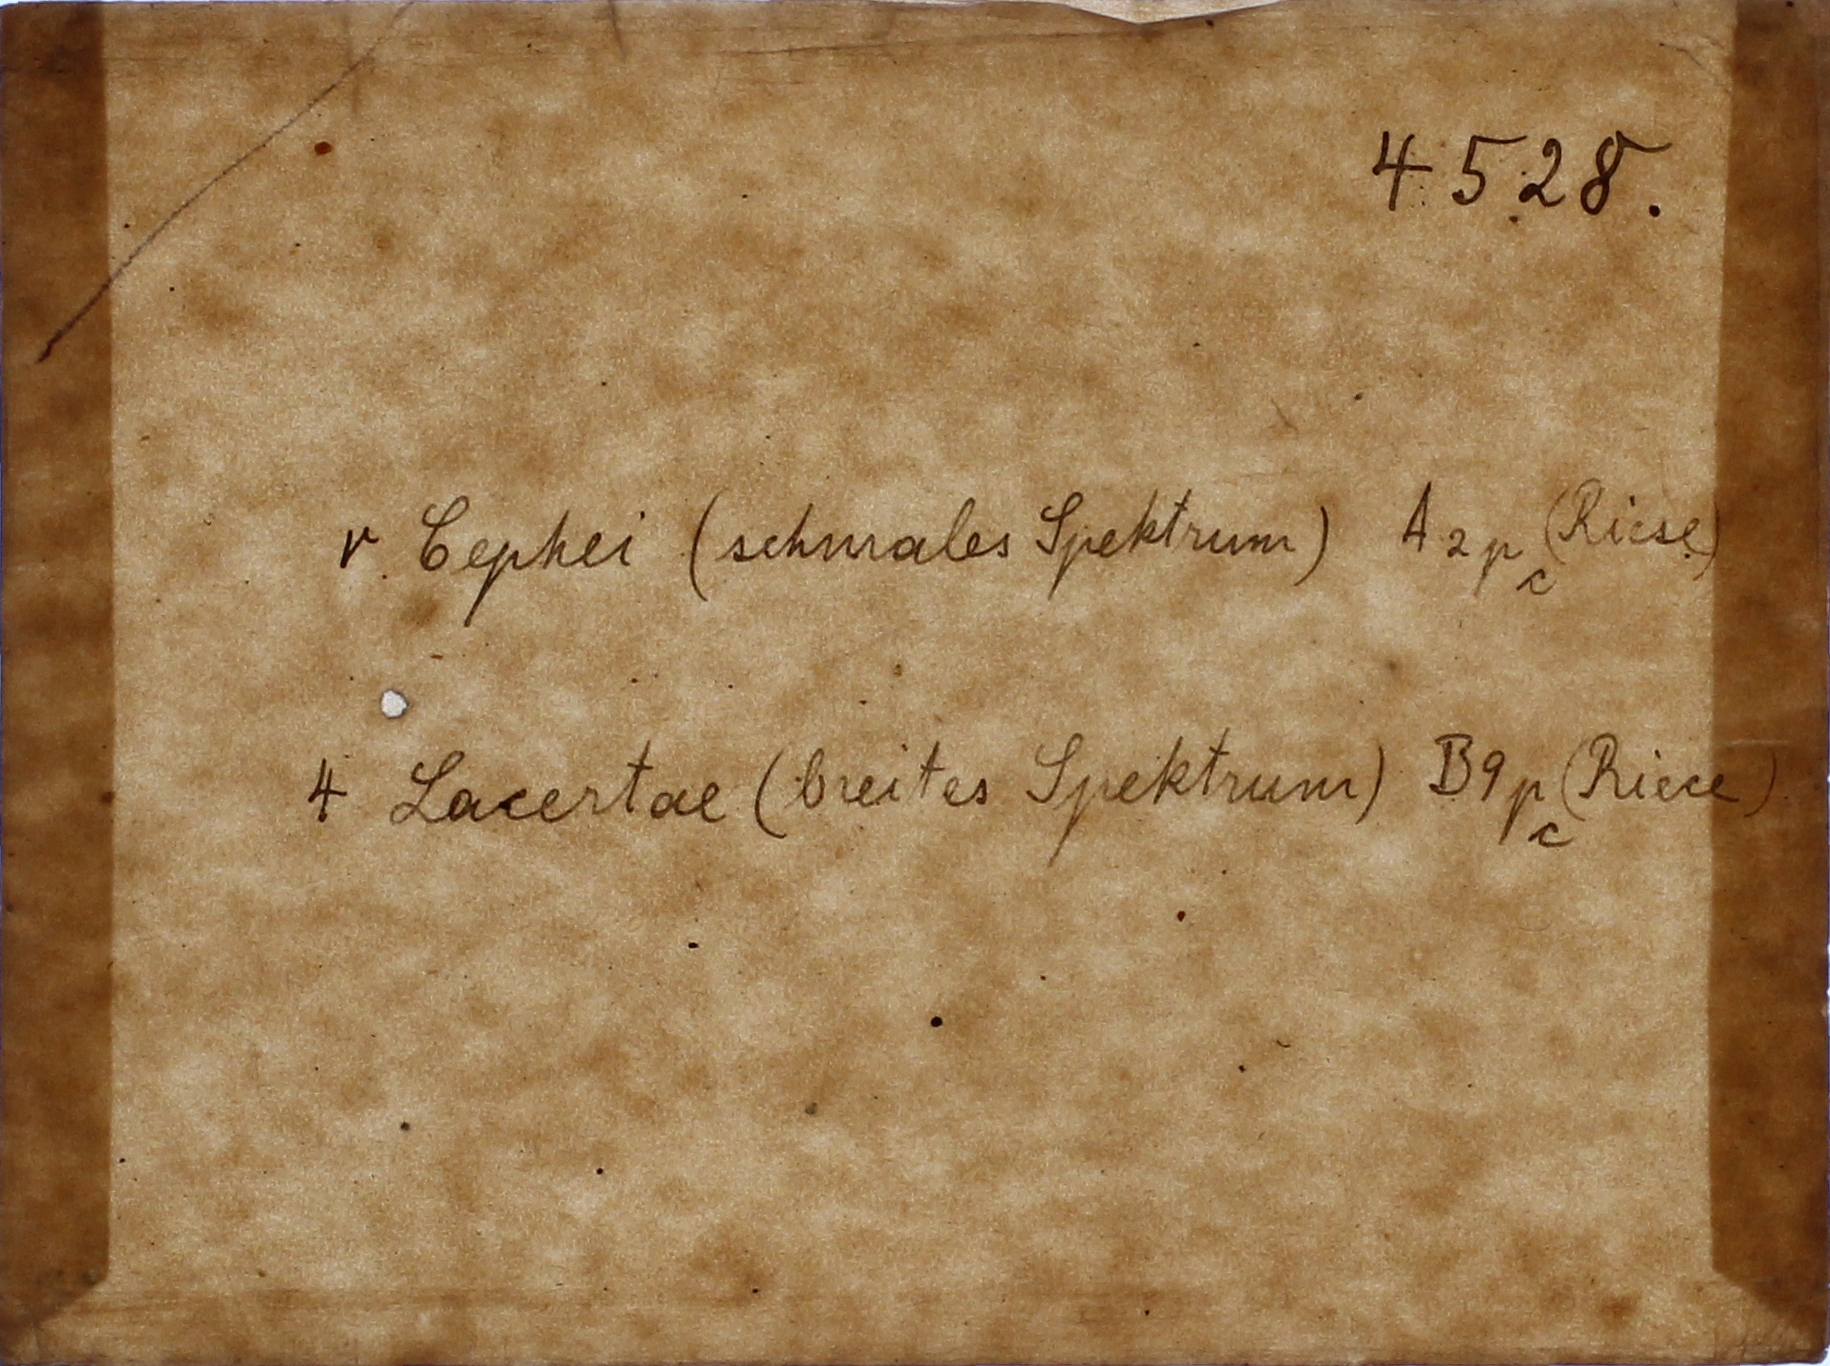 4528.
ν Cephei (schmales Spektrum) A2pc (Riese)
4 Lacertae (breites Spektrum) B9pc (Riese)